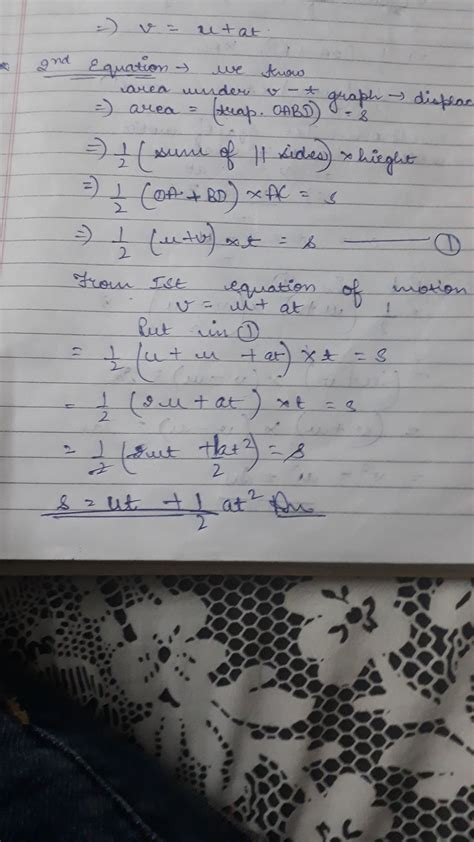 =) v = u + at
2nd Equation → we know
area under v - t graph → displac
=) area = (trap. OABD) = s
=) 1/2 (sum of || sides) × hieght
=) 1/2 (OA + BD) × AC = s
=) 1/2 (u+v) × t = s ——— ①
From Ist equation of motion
v = u + at
Put in ①
= 1/2 (u + u + at) × t = s
= 1/2 (2u + at) × t = s
= 1/2 (2ut + at²/2) = s
s = ut + 1/2 at²